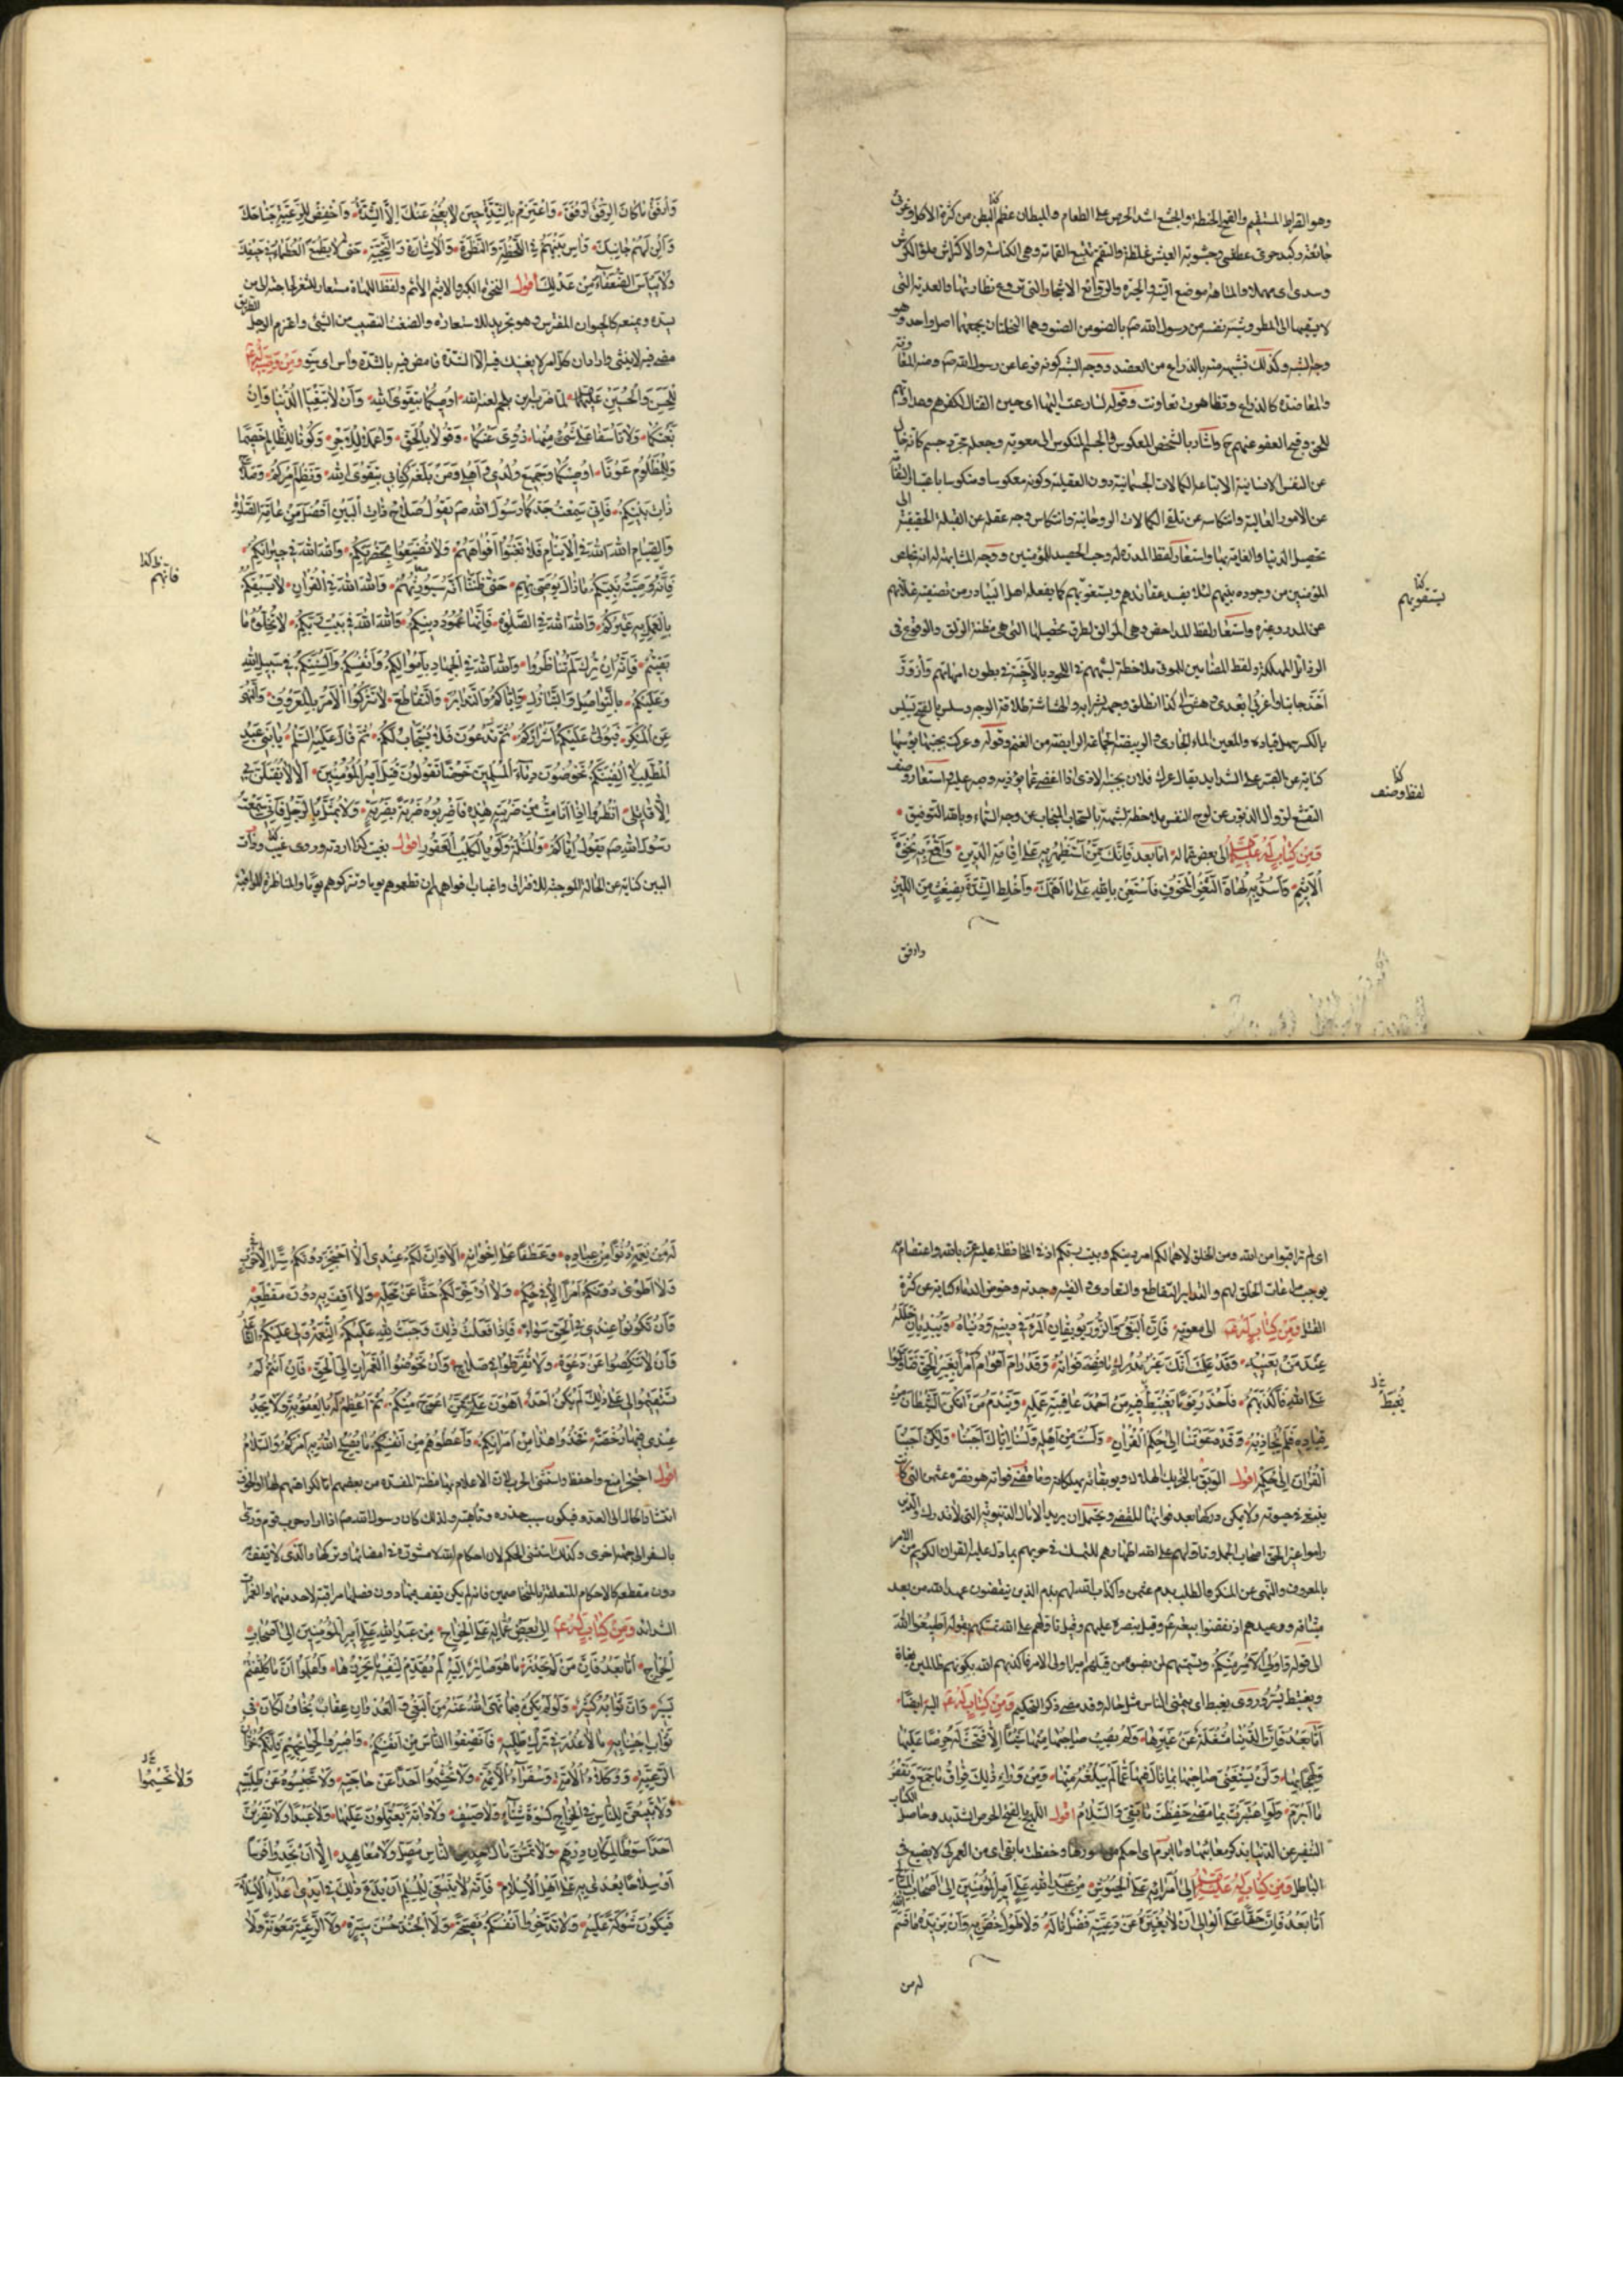 وهو القراط المستقيم والقمح الحنطة والجشع اشد الحرص على الطعام والمبطان عظيم البطن من كثرة الاكل وغرثى
جائعة وكبد حرى عطشى وجشوبة العيش غلظه والتقمم تتبع القمامة وهى الكناسة والاكتراش ملؤ الكرش
وسدى اى مهملا والمتاهة موضع التيه والجزه والروائع الاشجار التى تروع نظارتها والعذية التى
لا يسقيها الا المطر وشبه نفسه من رسول الله صم بالصنو من الصنو وهما النخلتان يجمعهما اصل واحد وهو
وجه الشبه وكذلك تشبيهه منه بالذراع من العضد ووجه الشبه كونه فرعا عن رسول الله صم ومنه المعا
والمعاضدة كالذراع وتظاهرت تعاونت وقوله لسارعت اليها اى حين القتال لكفرهم وعداوتهم
للحق وقبح العفو عنهم ح واشار بالشخص المعكوس والجسم المنكوس الى معوية وجعله مجرد جسم كانه خال
عن النفس الانسانية الاتباعه الكمالات الجسمانية دون العقلية وكونه معكوسا ومنكوسا باعتبار التفاته
عن الامور العالية وانتكاسه عن تلقى الكمالات الروحانية وانتكاس وجه عقله عن القبلة الحقيقية الى
تحصيل الدنيا والغاية بها واستعار لفظ المدرة له وحب الحصيد للمؤمنين ووجه المشابهة له انه يخلص
المؤمنين من وجوده بينهم لئلا يفسد عقائدهم ويستغويهم كما يفعله اهل البيادر من تصفية غلاتهم
عن المدر وغيره واستعار لفظ المداحض وهى المزالق لطرق تحصيلها التى هى مظنة الزلق والوقوع فى
الرذائل المهلكة ولفظ المضامين للموتى ملاحظة لشبههم فى اللحود بالاجنة فى بطون امهاتهم وازورّ
اخذ جانبا واعزبى ابعدى وهش الى كذا انطلق وجهه بشرا به والهشاشة طلاقة الوجه وسلس بالفتح يسلس
بالكسر سهل قياده والمعين الماء الجارى والربيضة الجماعة الرابضة من الغنم وقوله وعركت بجنبها بؤسها
كناية عن الصبر على الشدايد يقال عرك فلان بجنبه الاذى اذا اغضى عما يؤذيه وصبر عليه واستعار وصف
التقشع لزوال الذنوب عن لوح النفس ملاحظة لشبهه بانجياب السحاب عن وجه السماء وبالله التوفيق
ومن كتاب له عليه السلم الى بعض عماله اما بعد فانك ممن استظهر به على اقامة الدين واقمع به نخوة
الاثيم واسد به لهاة الثغر المخوف فاستعن بالله على ما اهمك واخلط الشدة بضغث من اللين
وارفق
كذا
يستغويهم
كذا
لفظ وصف
وارفق ما كان الرفق ارفق واعتزم بالشدة حين لا يغنى عنك الا الشدة واخفض للرعية جناحك
والن لهم جانبك واس بينهم فى اللحظة والنظرة والاشارة والتحية حتى لا يطمع العظماء فى حيفك
ولا يياس الضعفاء من عدلك اقول النخوة الكبر والاثيم الاثم ولفظ اللهاة مستعار للثغر
مضى فيه لا ينثنى واراد ان كل امر لا يغنيك فيه الا الشدة فامض فيه بالشدة واس اى سوّ ومن وصية له ع
للحسن والحسين عليهما لما ضربه ابن ملجم لعنه الله اوصيكما بتقوى الله وان لا تبغيا الدنيا وان
بغتكما ولا تاسفا على شىء منها زوى عنكما وقولا بالحق واعملا للاجر وكونا للظالم خصما
وللمظلوم عونا اوصيكما وجميع ولدى واهلى ومن بلغه كتابى بتقوى الله ونظم امركم وصلاح
ذات بينكم فانى سمعت جدكما رسول الله صم يقول صلاح ذات البين افضل من عامة الصلوة
والصيام الله الله فى الايتام فلا تغبوا افواههم ولا تضيعوا بحضرتكم والله الله فى جيرانكم
فانه وصية نبيكم ما زال يوصى بهم حتى ظننا انه سيورثهم والله الله فى القران لا يسبقكم
بالعمل به غيركم والله الله فى الصلوة فانها عمود دينكم والله الله فى بيت ربكم لا تخلوه ما
بقيتم فانه ان ترك لم تناظروا والله الله فى الجهاد باموالكم وانفسكم والسنتكم فى سبيل الله
وعليكم بالتواصل والتباذل واياكم والتدابر والتقاطع لا تتركوا الامر بالمعروف والنهى
عن المنكر فيولى عليكم اشراركم ثم تدعون فلا يستجاب لكم ثم قال عليه السلم يا بنى عبد
المطلب لا الفينكم تخوضون دماء المسلمين خوضا تقولون قتل امير المؤمنين الا لا يقتلن بى
الا قاتلى انظروا اذا انا مت من ضربته هذه فاضربوه ضربة بضربة ولا يمثل بالرجل فانى سمعت
رسول الله صم يقول اياكم والمثلة ولو بالكلب العقور اقول بغيت كذا اردته وروى غيب وذات
البين كناية عن الحالة الموجبة للافتراق واغباب افواههم ان تطعموهم يوما وتتركوهم يوما والمناظرة المراقبة
ظ كذا
فانهم
اى لم تراقبوا من الله ومن الخلق لاهمالكم امر دينكم وبيت ربكم اذ فى المحافظة عليه عز بالله واعتصام به
يوجب مراعات الخلق لهم والتدابر التقاطع والتعادى والفيته وجدته وخوض الدماء كناية عن كثرة
القتل ومن كتاب له ع الى معوية فان البغى والزور يوبقان المرء فى دينه ودنياه ويبديان خلله
عند من يعيبه وقد علمت انك غير مدرك ما قضى فواته وقد رام اقوام امرا بغير الحق فتاولوا
على الله فاكذبهم فاحذر يوما يغتبط فيه من احمد عاقبة عمله ويندم من امكن الشيطان من
قياده فلم يجاذبه وقد دعوتنا الى حكم القران ولست من اهله ولسنا اياك اجبنا ولكن اجبنا
القران الى حكمه اقول الوبق بالتحريك الهلاك ويوبقانه يهلكانه وما قضى فواته هو نصرة عثمن التى كانت
ينبغى فى حيوته ولا يمكن دركها بعد فواتها للقضى ويحتمل ان يريد الامال الدنيوية التى لا تدرك والذين
راموا غير الحق اصحاب الجمل وتاولهم على الله اظهارهم للتمسك فى حربهم بما دل عليه القران الكريم من الامر
بالمعروف والنهى عن المنكر والطلب بدم عثمن واكذاب الله لهم بذم الذين ينقضون عهد الله من بعد
الى قوله واولى الامر منكم
ويغتبط يسر وروى يغبط اى يتمنى الناس مثل حاله وقد مضى ذكر التحكيم ومن كتاب له ع اليه ايضا
اما بعد فان الدنيا مشغلة عن غيرها ولم يصب صاحبها منها شيئا الا فتحت له حرصا عليها
ولهجا بها ولن يستغنى صاحبها بما نال فيها عما لم يبلغه منها ومن وراء ذلك فراق ما جمع ونقض
ما ابرم ولو اعتبرت بما مضى حفظت ما بقى والسلام اقول اللهج بالفتح الحرص الشديد وحاصل الكتاب
التنفير عن الدنيا بذكر معائبها وما ابرم اى احكم من امورها وحفظت ما بقى اى من العمر كى لا يضيع فى
الباطل ومن كتاب له عليه السلم الى امرائه على الجيوش من عبد الله على امير المؤمنين الى اصحاب المسالح
اما بعد فان حقا على الوالى ان لا يغيره عن رعيته فضل ناله ولا طول خص به وان يزيده ما قسم
له من
يغبط
له من نعمه دنوا من عباده وعطفا على اخوانه الا وان لكم عندى ان لا احتجز دونكم سرا الا فى حرب
ولا اطوى دونكم امرا الا فى حكم ولا اؤخر لكم حقا عن محله ولا اقف به دون مقطعه
وان تكونوا عندى فى الحق سواء فاذا فعلت ذلك وجبت لله عليكم النعمة ولى عليكم الطاعة
وان لا تنكصوا عن دعوة ولا تفرطوا فى صلاح وان تخوضوا الغمرات الى الحق فان انتم لم
تستقيموا لى على ذلك لم يكن احد اهون على ممن اعوج منكم ثم اعظم له العقوبة ولا يجد
عندى فيها رخصة فخذوا هذا من امرائكم واعطوهم من انفسكم ما يصلح الله به امركم والسلام
اقول احتجز امنع واحفظ واستثنى الحرب لان الاعلام بها مظنة المفسدة
انتشار الحال الى العدو فيكون سبب حذره وتاهبه ولذلك كان رسول الله صم اذا اراد حرب قوم ورى
بالسفر الى جهة اخرى وكذلك استثنى الحكم لان احكام الله لا مشورة فى امضائها وتركها والذى لا يقف
دون مقطعه كالاحكام المتعلقة بالمتخاصمين فانه لم يكن يقف فيها دون فصلها مراقبة لاحد منهما والغمرات
الشدائد ومن كتاب له ع الى بعض عماله على الخراج من عبد الله على امير المؤمنين الى اصحاب
الخراج اما بعد فان من لم يحذر ما هو صائر اليه لم يقدم لنفسه ما يحرزها واعلموا ان ما كلفتم
يسير وان ثوابه كثير ولو لم يكن فيما نهى الله عنه من البغى والعدوان عقاب يخاف لكان فى
ثواب اجتنابه ما لا عذر فى ترك طلبه فانصفوا الناس من انفسكم واصبروا لحوائجهم فانكم خزان
الرعية ووكلاء الامة وسفراء الائمة ولا تحشموا احدا عن حاجته ولا تحبسوه عن طلبته
ولا تبيعن للناس فى الخراج كسوة شتاء ولا صيف ولا دابة يعتملون عليها ولا عبدا ولا تضربن
احدا سوطا لمكان درهم ولا تمسن مال احد من الناس مصل ولا معاهد الا ان تجدوا فرسا
او سلاحا يعدى به على اهل الاسلام فانه لا ينبغى للمسلم ان يدع ذلك فى ايدى اعداء الاسلام
فيكون شوكة عليه ولا تدخروا انفسكم نصيحة ولا الجند حسن سيرة ولا الرعية معونة ولا
ولا تحسموا